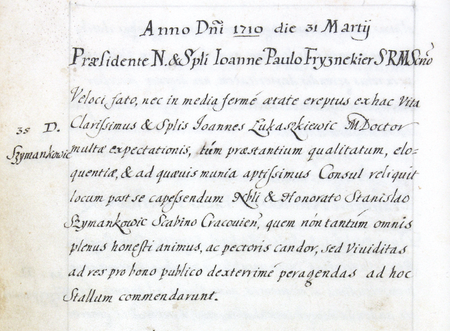 Anno Dñi 1710 die 31 Martij
Præsidente N. & Spli Ioanne Paulo Fryznekier SRM
Veloci fato, nec in media fermé ætate ereptus ex hac Vita
Clarissimus & Splis Ioannes Łukaszkiewic MDoctor
38 D.
Szymankowic
multæ expectationis, tùm præstantium qualitatum, elo-
quentiæ, & ad quævis munia aptissimus Consul reliquit
locum post se capessendum Nbli & Honorato Stanislao
Szymankowic Scabino Cracovien, quem nón tantúm omnis
plenus honesti animus, ac pectoris candor, sed Vividitas
ad res pro bono publico dexterrimé peragendas ad hoc
Stallum commendarunt.